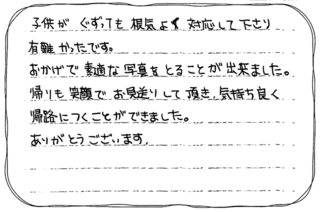 子供が ぐずっても 根気よく 対応して下さり
有難かったです。
おかげで 素適な写真を とることが出来ました。
帰りも 笑顔で お見送りして頂き、気持ち良く
帰路につくことができました。
ありがとうございます。